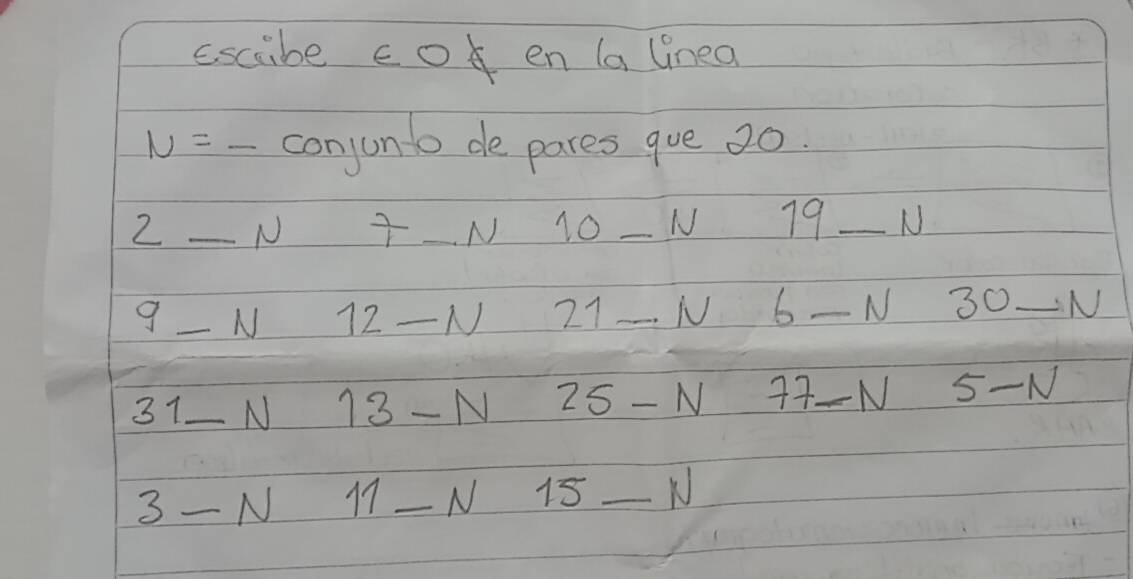 Escribe ∈ O ∉ en la línea
N = - conjunto de pares que 20.
2 _ N 7 _ N 10 _ N 19 _ N
9 _ N 12 _ N 21 _ N 6 _ N 30 _ N
31 _ N 13 _ N 25 _ N 77 _ N 5 _ N
3 _ N 11 _ N 15 _ N